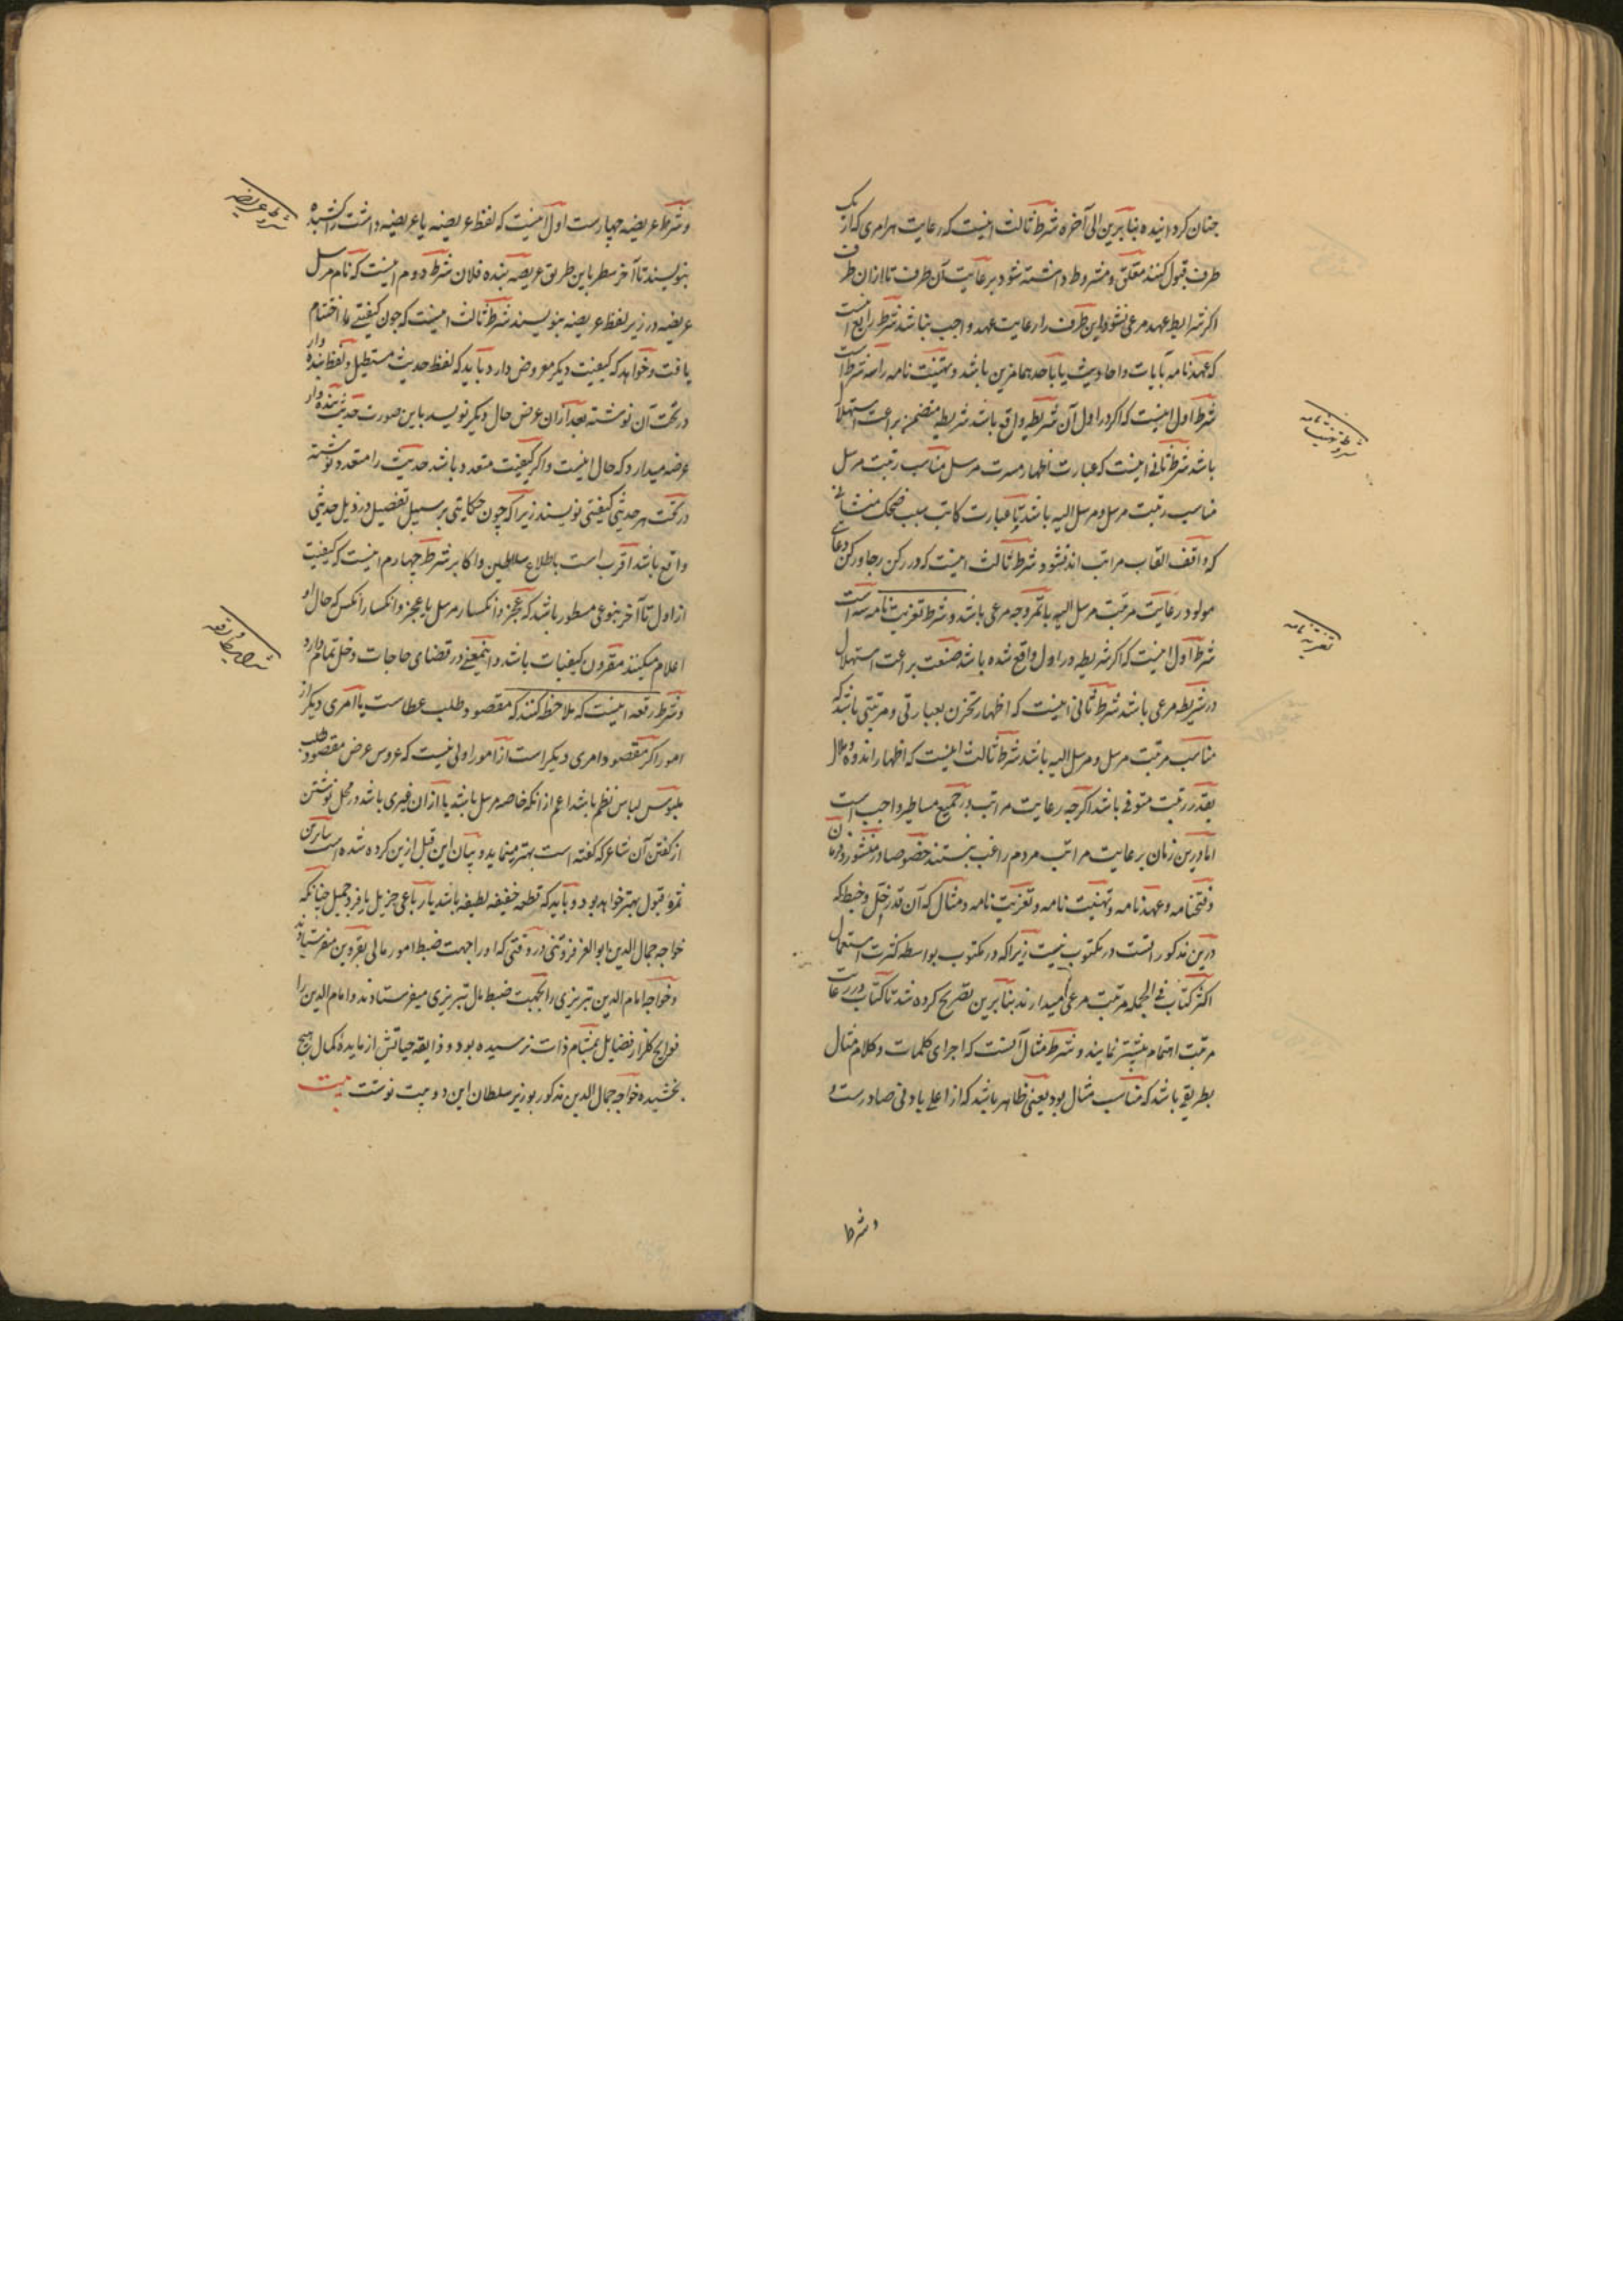 چنان کردانیده بنابرین الی آخره شرط ثالث اینست که رعایت هر امری که از یک
طرف قبول کنند معلق و مشروط داشته شود برعایت آن طرف تا از ان طرف
اکر شرایط عهد مرعی نشود این طرف را رعایت عهد واجب نباشد شرط رابع آنست
که عهدنامه بآیات و احادیث یا باحدهما مزین باشد و تهنیت نامه را سه شرط است
شرط اول اینست که اکر در اول آن شریطه واقع باشد شریطه متضمن براعت استهلال
باشد شرط ثانی اینست که عبارت اظهار مسرت مرسل مناسب رتبت مرسل
مناسب رتبت مرسل و مرسل الیه باشد تا عبارت کاتب سبب ضحک منشیانی
که واقف القاب مراتب اند نشود شرط ثالث اینست که در رکن رجا و رکن دعای
مولود رعایت مرتبت مرسل الیه باتم وجه مرعی باشد و شرط تعزیت نامه سه است
شرط اول اینست که اکر شریطه در اول واقع شده باشد صنعت براعت استهلال
در شریطه مرعی باشد شرط ثانی اینست که اظهار تحزن بعبارتی و مرتبتی باشد که
مناسب مرتبت مرسل و مرسل الیه باشد شرط ثالث اینست که اظهار اندوه و ملال
بقدر رتبت متوفی باشد اکرچه رعایت مراتب در جمیع مساطیر واجب است
اما درین زمان برعایت مراتب مردم راغب نیستند خصوصا در منشور و فرمان
و فتحنامه و عهدنامه و تهنیت نامه و تعزیت نامه و مثال که آن قدر خلل و خبط که
درین مذکور انست در مکتوب نیست زیرا که در مکتوب بواسطه کثرت استعمال
اکثر کتاب فی الجمله مرتبت مرعی میدارند بنابرین تصریح کرده شد تا کتاب در رعایت
مرتبت اهتمام بیشتر نمایند و شرط مثال آنست که اجرای کلمات و کلام مثال
بطریقی باشد که مناسب مثال بود یعنی ظاهر باشد که از اعلی بادنی صادرست و
و شرط
شروط تهنیت نامه
تعزیه نامه
و شرط عریضه چهارست اول اینست که لفظ عریضه یا عریضه داشت را کشیده
بنویسند تا آخر سطر باین طریق عریضه بنده فلان شرط دوم اینست که نام مرسل
عریضه در زیر لفظ عریضه بنویسند شرط ثالث اینست که چون کیفیتی ما اختتام
یافت و خواهد که کیفیت دیکر معروض دارد باید که لفظ حدیث مستطیل و لفظ بنده وار
در تحت آن نوشته بعد از ان عرض حال دیکر نویسد باین صورت حدیث بنده وار
عرضه میدارد که حال اینست و اکر کیفیت متعدد باشد حدیث را متعدد نوشته
در تحت هر حدیثی کیفیتی نویسند زیرا که چون حکایتی بر سبیل تفصیل در ذیل حدیثی
واقع باشد اقرب است باطلاع سلاطین و اکابر شرط چهارم اینست که کیفیت
از اول تا آخر بنوعی مسطور باشد که عجز و انکسار مرسل یا عجز و انکسار آنکس که حال او
اعلام میکنند مقرون کیفیات باشد و اینمعنی در قضای حاجات دخل تمام دارد
و شرط رقعه اینست که ملاحظه کنند که مقصود طلب عطاست یا امری دیکر از
امور اکر مقصود امری دیکر است از امور اولی نیست که عروس عرض مقصود طلب
ملبوس لباس نظم باشد اعم از انکه خاصه مرسل باشد یا از ان غیری باشد در محل نوشتن
از کفتن آن شاعر که کفته است بهتر مینماید و بیان این قبل ازین کرده شده است بنابرین
ثمره قبول بهتر خواهد بود و باید که قطعه خفیفه لطیفه باشد یا رباعی جزیل یا فرد جمیل چنانکه
خواجه جمال الدین ابو العز قزوینی در وقتی که او را جهت ضبط امور مالی بقزوین میفرستادند
و خواجه امام الدین تبریزی را بجهت ضبط مال تبریزی میفرستادند و امام الدین را
فوایح کلزار فضایل بمشام ذات نرسیده بود و ذایقه حیاتش از مایده کمال هیچ
نچشیده خواجه جمال الدین مذکور بوزیر سلطان این دو بیت نوشت بیت
شروط عریضه
شرایط رقعه